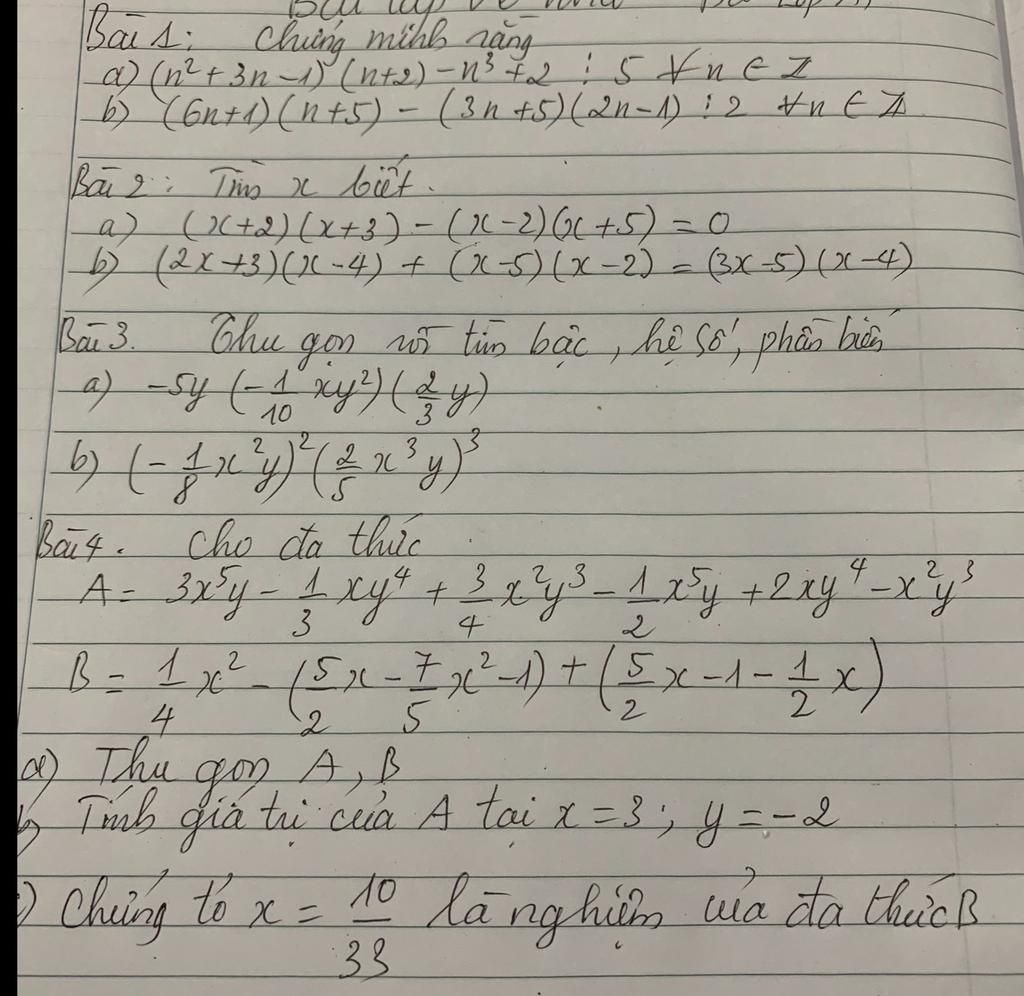 Bài 1: Chứng minh rằng
a) (n² + 3n - 1) (n+2) - n³ + 2 ⋮ 5 ∀n ∈ Z
b) (6n+1)(n+5) - (3n+5)(2n-1) ⋮ 2 ∀n ∈ Z
Bài 2: Tìm x biết.
a) (x+2)(x+3) - (x-2)(x+5) = 0
b) (2x+3)(x-4) + (x-5)(x-2) = (3x-5)(x-4)
Bài 3. Thu gọn rồi tìm bậc, hệ số, phần biến
a) -5y (-1/10 xy²)(2/3 y)
b) (-1/8 x²y)² (2/5 x³y)³
Bài 4. Cho đa thức
A = 3x⁵y - 1/3 xy⁴ + 3/4 x²y³ - 1/2 x⁵y + 2xy⁴ - x²y³
B = 1/4 x² - (5/2 x - 7/5 x² - 1) + (5/2 x - 1 - 1/2 x)
a) Thu gọn A, B
b) Tính giá trị của A tại x = 3; y = -2
) Chứng tỏ x = 10/33 là nghiệm của đa thức B